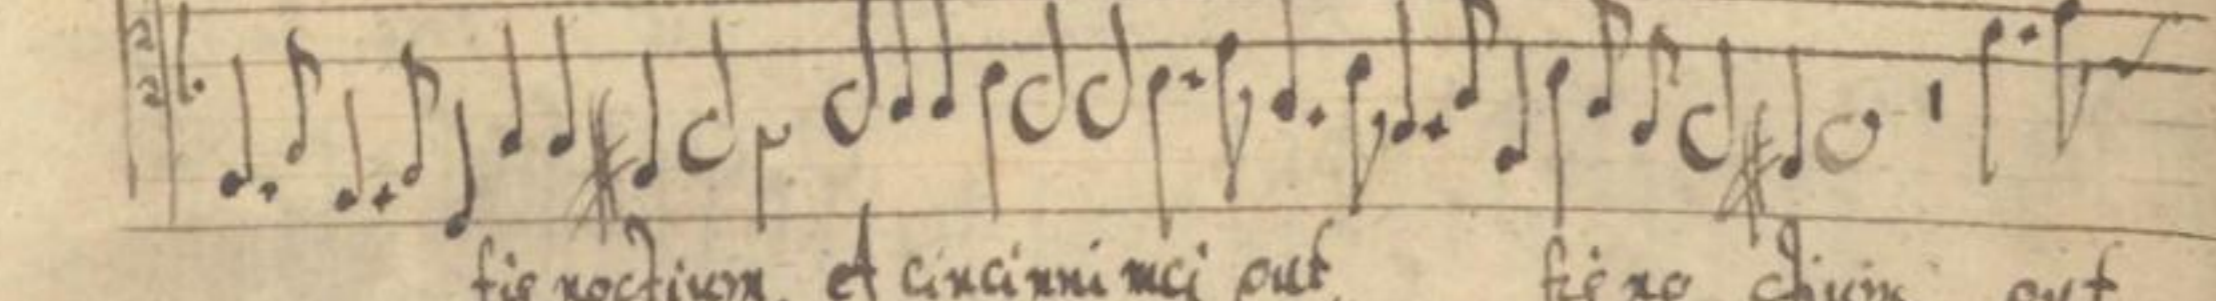 tis noctium et cincinni mei gut tis no ctium gut